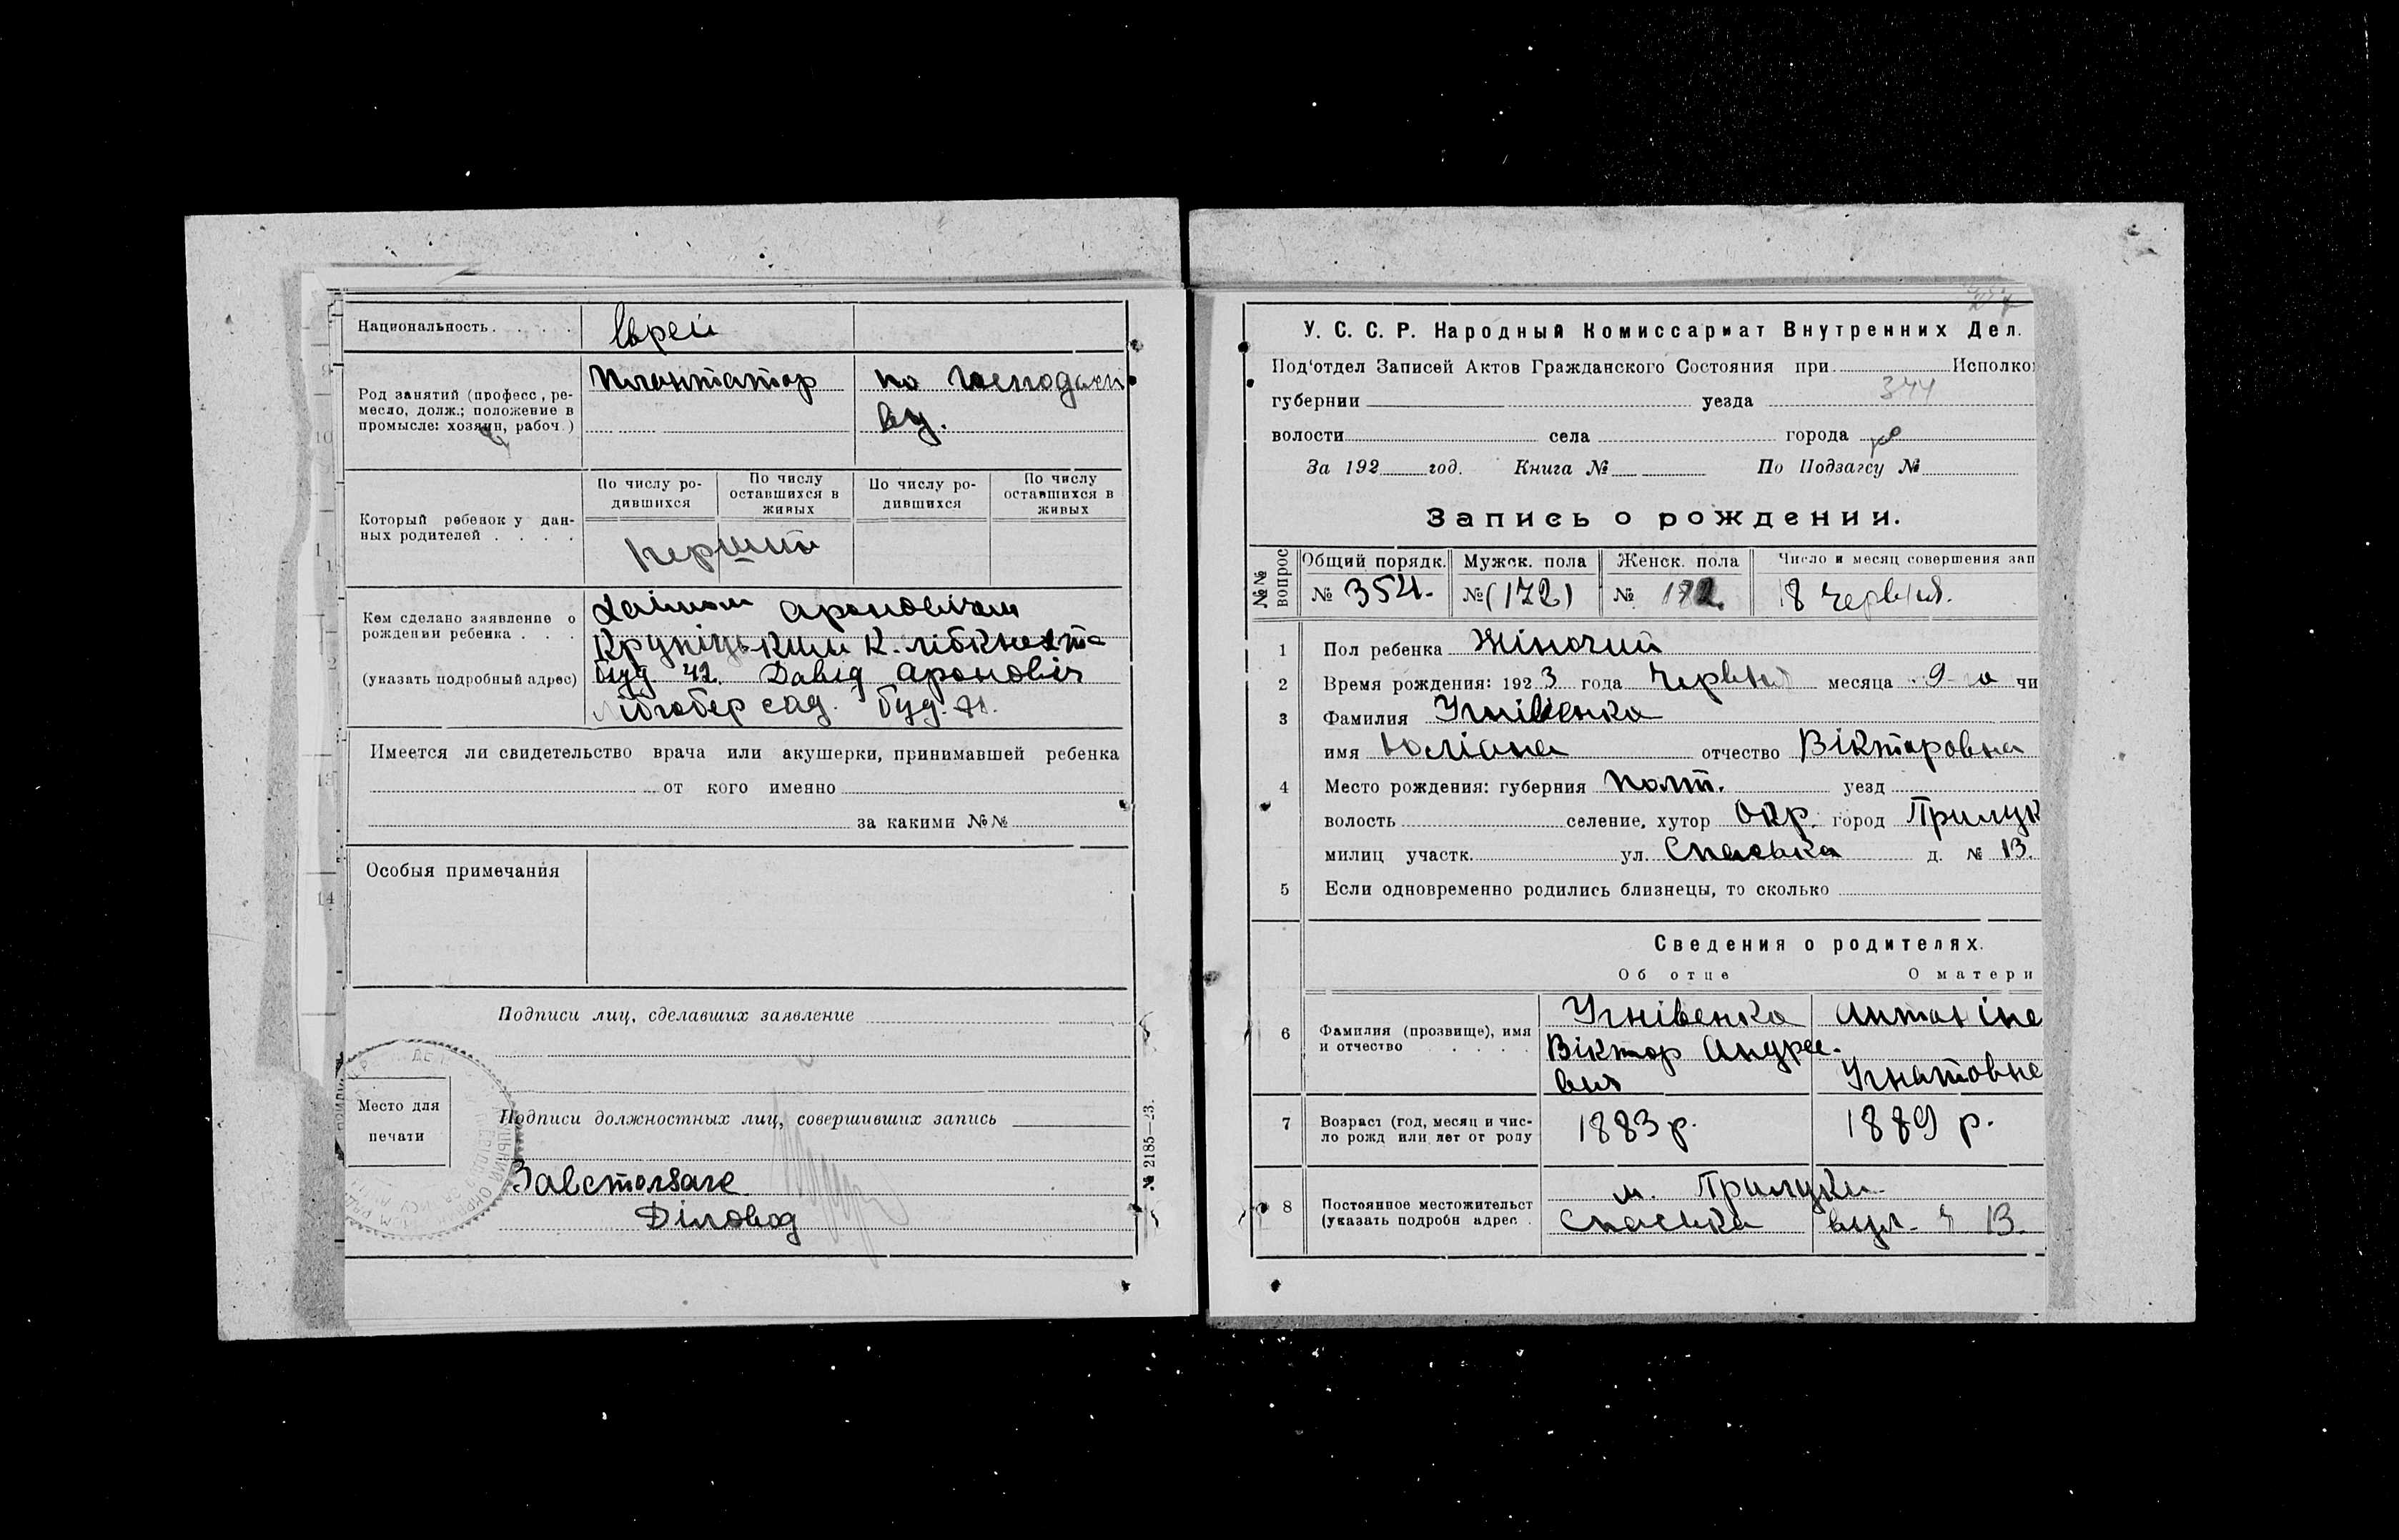 Национальность. . . . .
Єврей
Род занятий (професс, ре-
месло, долж.; положение в
промысле: хозяин, рабоч.)
Плантатор
по господарст
ву.
Который ребенок у дан-
ных родителей . . . .
По числу ро-
дившихся
По числу
оставшихся в
живых
По числу ро-
дившихся
По числу
оставшихся в
живых
Перший
Кем сделано заявление о
рождении ребенка . . .
(указать подробный адрес)
Хаімом Ароновічем
Крупіцьким К. Лібкнехта
буд 42. Давід Ароновіч
сад. буд.
Имеется ли свидетельство врача или акушерки, принимавшей ребенка
от кого именно
за какими №№
Особыя примечания
Подписи лиц, сделавших заявление
Место для
печати
Подписи должностных лиц, совершивших запись
Завстолзагс
Діловод
№ 2185—23.
У. С. С. Р. Народный Комиссариат Внутренних Дел.
Под'отдел Записей Актов Гражданского Состояния при Исполко
344
губернии уезда
волости села города
За 192 год. Книга № По Подзагсу №
Запись о рождении.
№№ вопрос
Общий порядк.
№ 354.
Мужск. пола
№ (172)
Женск. пола
№ 182
Число и месяц совершения зап
18 Червня.
1 Пол ребенка Жіночий
2 Время рождения: 1923 года Червня месяца 9-го чи
3 Фамилия Ігнівенко
имя Юліана отчество Вікторовна
4 Место рождения: губерния Полт. уезд
волость селение, хутор Окр. город Прилук
милиц участк. ул. Спаська д. № 13.
5 Если одновременно родились близнецы, то сколько
Сведения о родителях.
Об отце О матери
6 Фамилия (прозвище), имя
и отчество . . . .
Ігнівенко
Віктор Андрее-
вич
Антоніне
Ігнатовне
7 Возраст (год, месяц и чис-
ло рожд или лет от роду
1883 р.
1889 р.
8 Постоянное местожительст
(указать подробн адрес .
м. Прилуки
Спаська вул. 13.